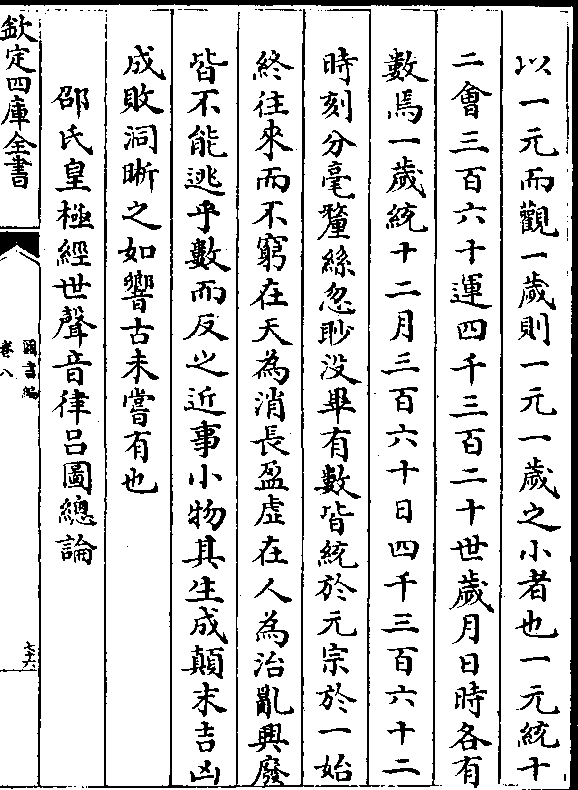 以一元而觀一歲則一元一歲之小者也一元統十
二會三百六十運四千三百二十世歲月日時各有
數焉一歲統十二月三百六十日四千三百六十二
時刻分毫釐絲忽眇没畢有數皆統於元宗於一始
終往來而不窮在天為消長盈虛在人為治亂興廢
皆不能逃乎數而反之近事小物其生成顛末吉凶
成敗洞晰之如響古未嘗有也
邵氏皇極經世聲音律呂圖總論
欽定四庫全書
圖書編
卷八